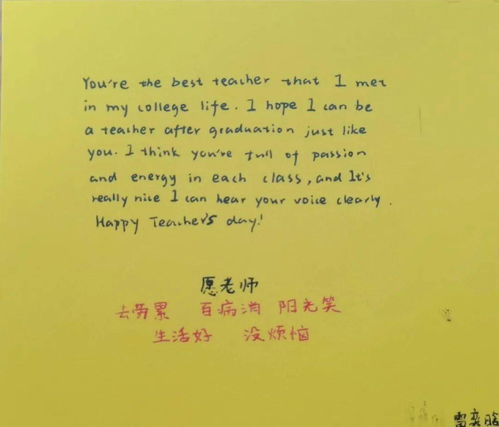 You're the best teacher that I met
in my college life. I hope I can be
a teacher after graduation just like
you. I think you're full of passion
and energy in each class, and It's
really nice I can hear your voice clearly.
Happy Teacher's day!
愿老师
去劳累 百病消 阳光笑
生活好 没烦恼
雷奕